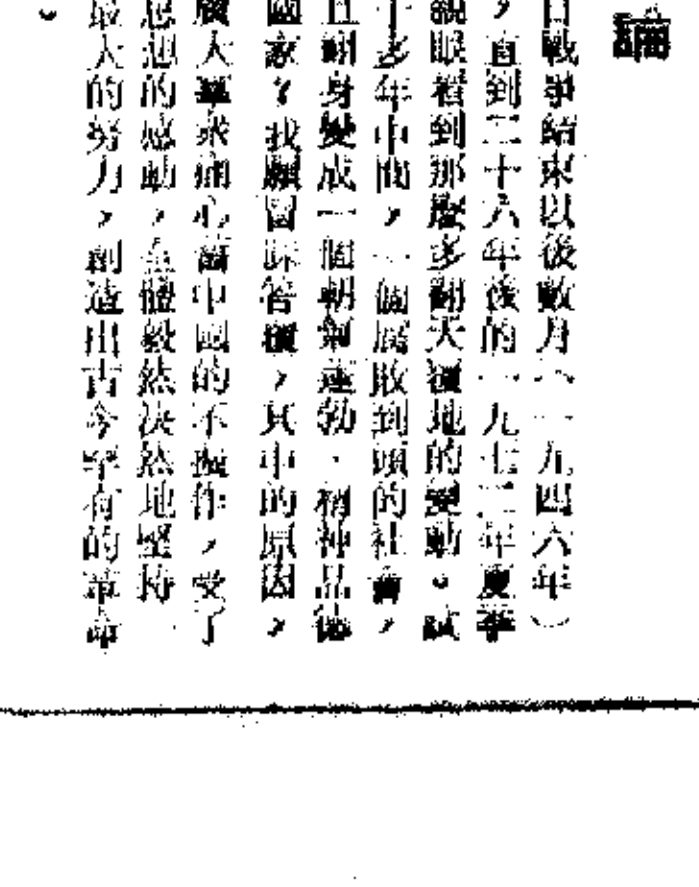 論
日戰爭結束以後數月(一九四六年)
，直到二十六年後的一九七二年夏季
親眼看到那麼多翻天覆地的變動。試
十多年中間，一個腐敗到頭的社會，
且翻身變成一個朝氣蓬勃、精神品德
國家？我願嘗試答覆，其中的原因，
廣大羣衆痛心舊中國的不振作，受了
思想的感動，全體毅然決然地堅持
最大的努力，創造出古今罕有的革命
。